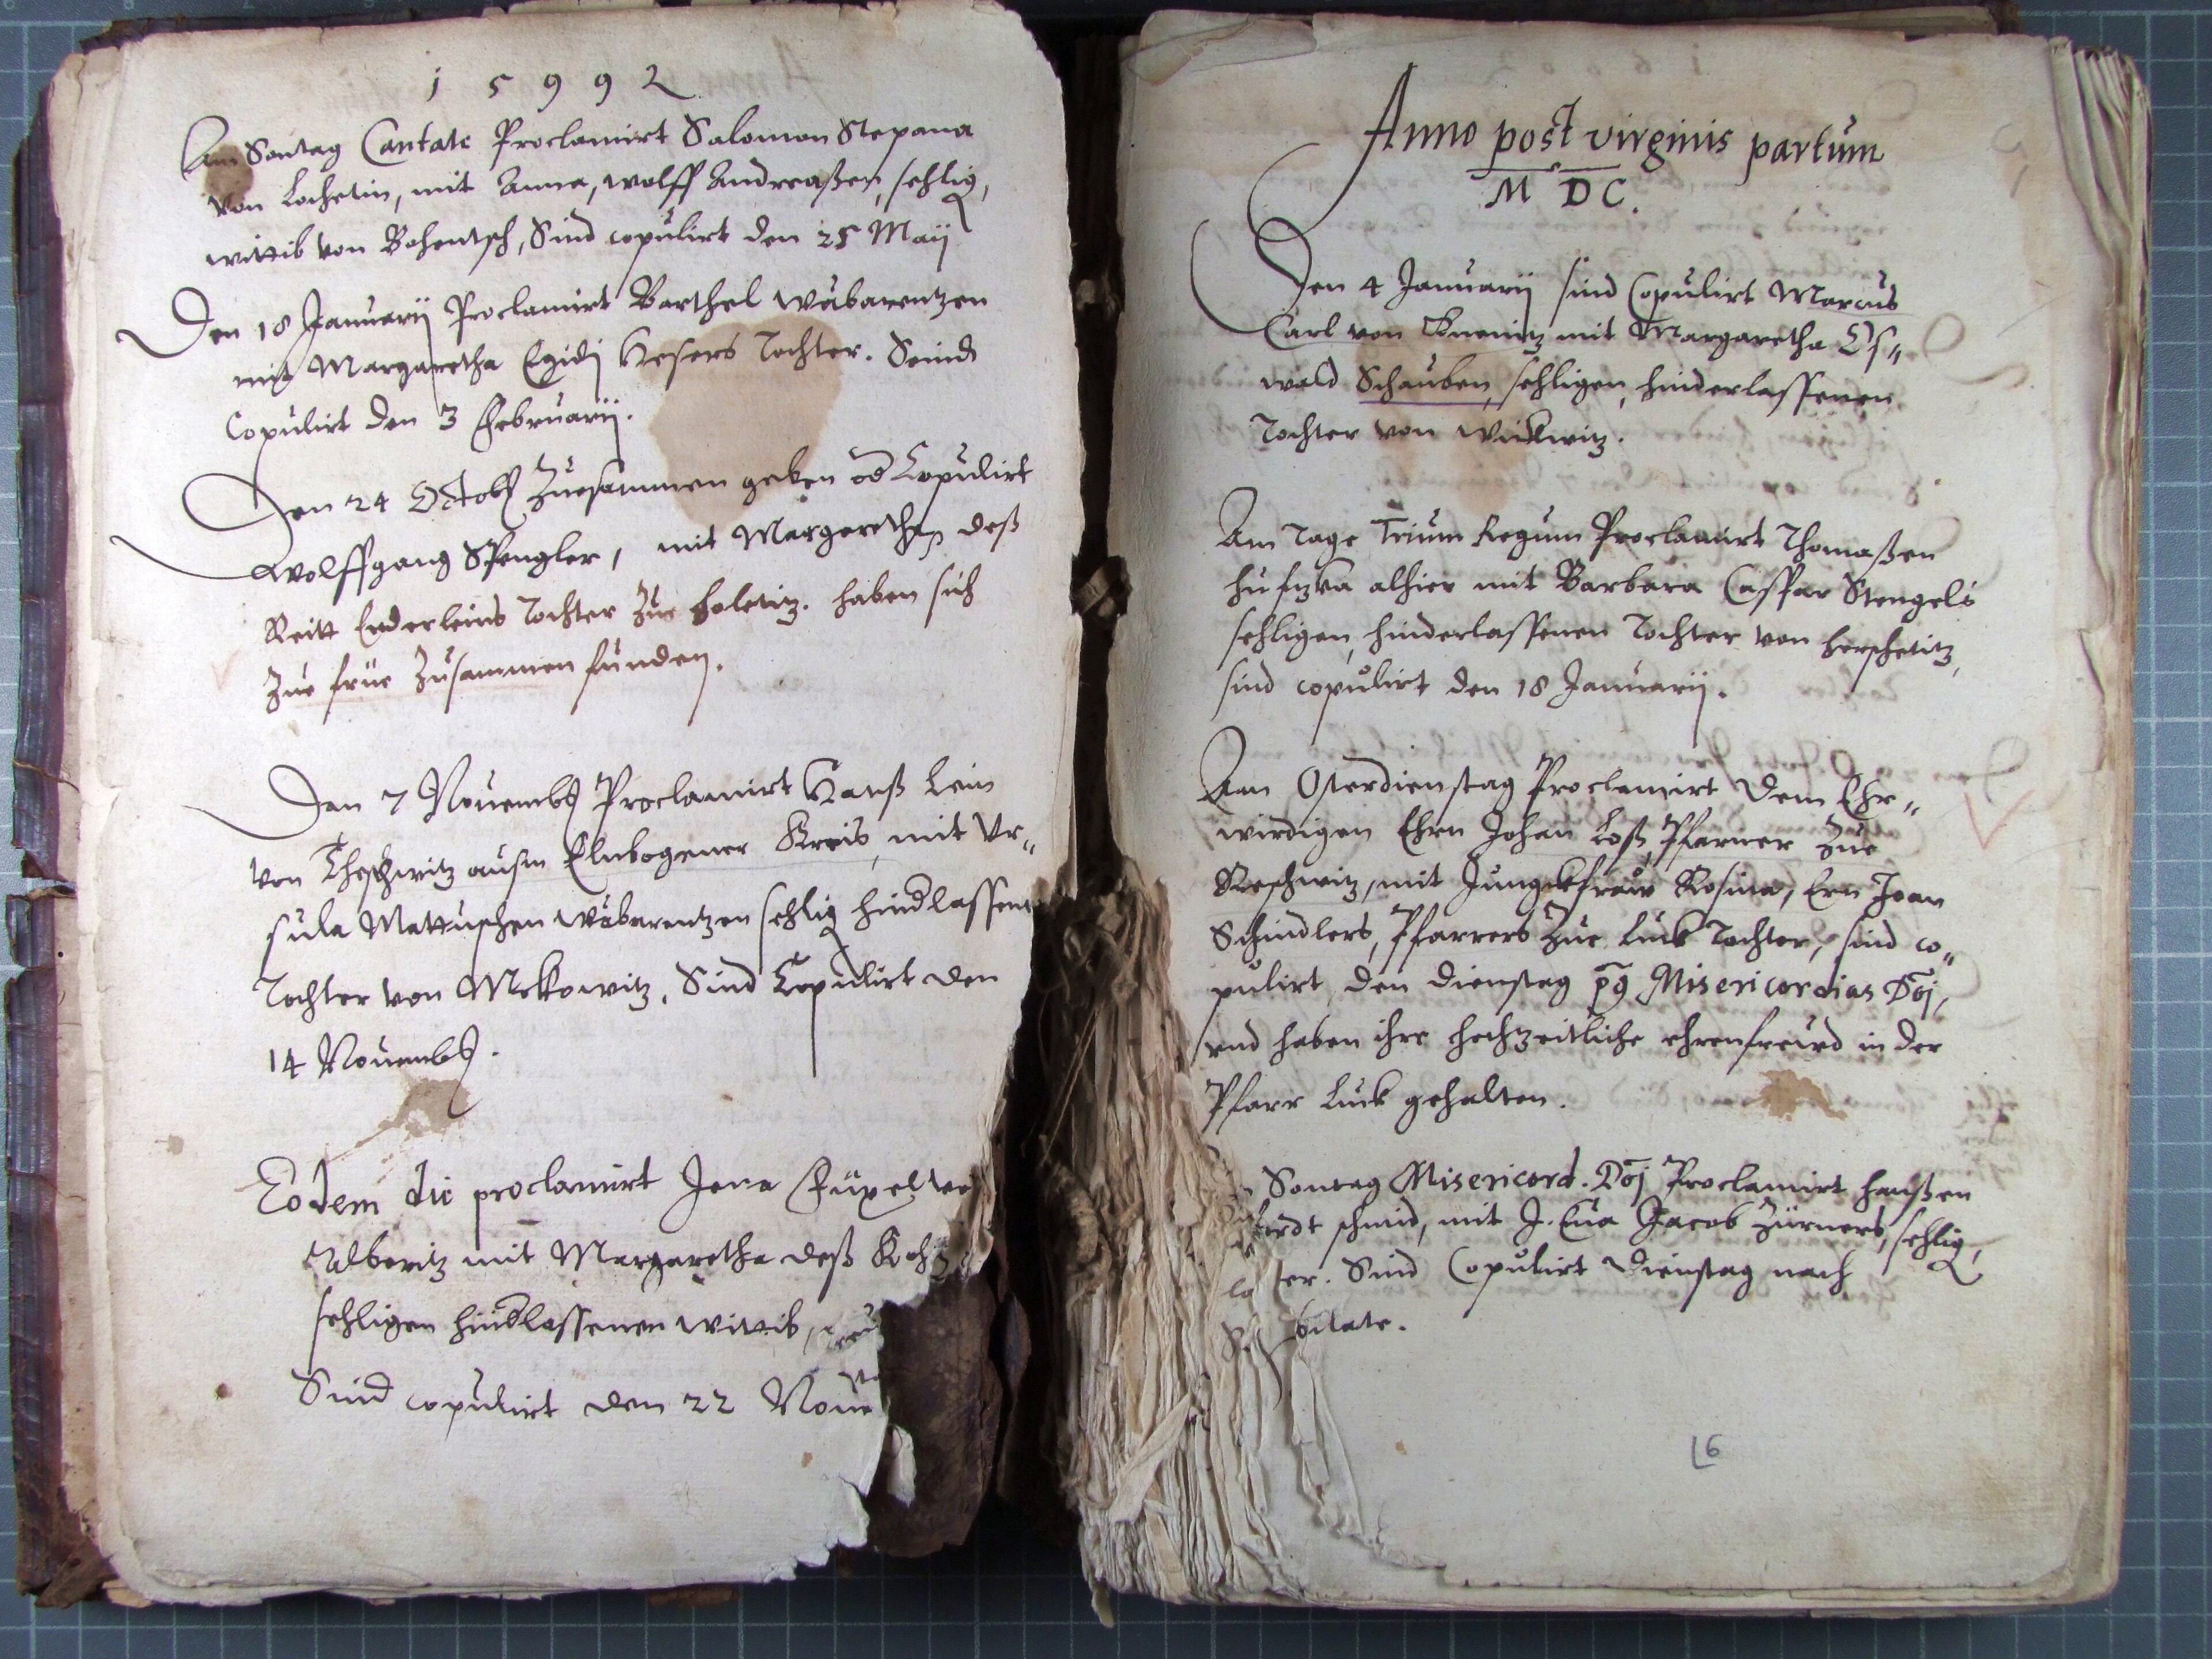 1 5 9 9
Am Sontag Cantate Proclamirt Salomon Stepana
von Lochetin, mit Anna, Wolff Andreaßen, sehlig,
wittib von Bohentsch, Sind copulirt den 25 Maij
Den 18 Januarij Proclamirt Barthel Wabarentzen
mit Margaretha Egidij Hesers Tochter. Seind
Copulirt den 3 Februarij.
Den 24 Octob zuesammen geben Copulirt
Wolffgang Spengler, mit Margarethen deß
Veitt Enderleins Tochter zue haletitz. haben sich
zue frue zusammen funden.
Den 7 Nouemb Proclamirt Hanß Lein
von Theschwitz ausm Elnbogener Kreis, mit Vr„
sula Mattuschen Wabarentzen sehlig hindlassene
Tochter von Mokowitz. Sind Copulirt den
14 Nouemb.
Eodem die proclamirt
Alberitz mit Margaretha deß
sehligen hindlassenen wittib,
Sind copulirt den 22 Noue
Anno post virginis partum
M DC.
Den 4 Januarij sind Copulirt Marcus
Carl von mit Margaretha Os„
wald Schauben, sehligen, hinderlassenen
Tochter von Wickwitz.
Am Tage Trium Regum Proclamirt Thomaßen
alhier mit Barbara Casspar Stengels
sehligen, hinderlassenen Tochter von herschetitz,
sind copulirt den 18 Januarij.
Am Osterdienstag Proclamirt dem Ehr„
wirdigen Ehrn Johan Loß, Pfarrer zue
Reschwitz, mit Jungckfraw Rosina, Ern Joan
Schindlers, Pfarrers zue Luck Tochter, sind co„
pulirt, den dienstag p9 Misericordias Dōj,
vnd haben ihre hochzeitliche ehrenfreud in der
Pfarr Luck gehalten.
Sontag Misericord. Dōj Proclamirt hanßen
schmid, mit J. Eua Jacob Zürners, sehlig,
ter. Sind Copulirt Dienstag nach
bilate.
16